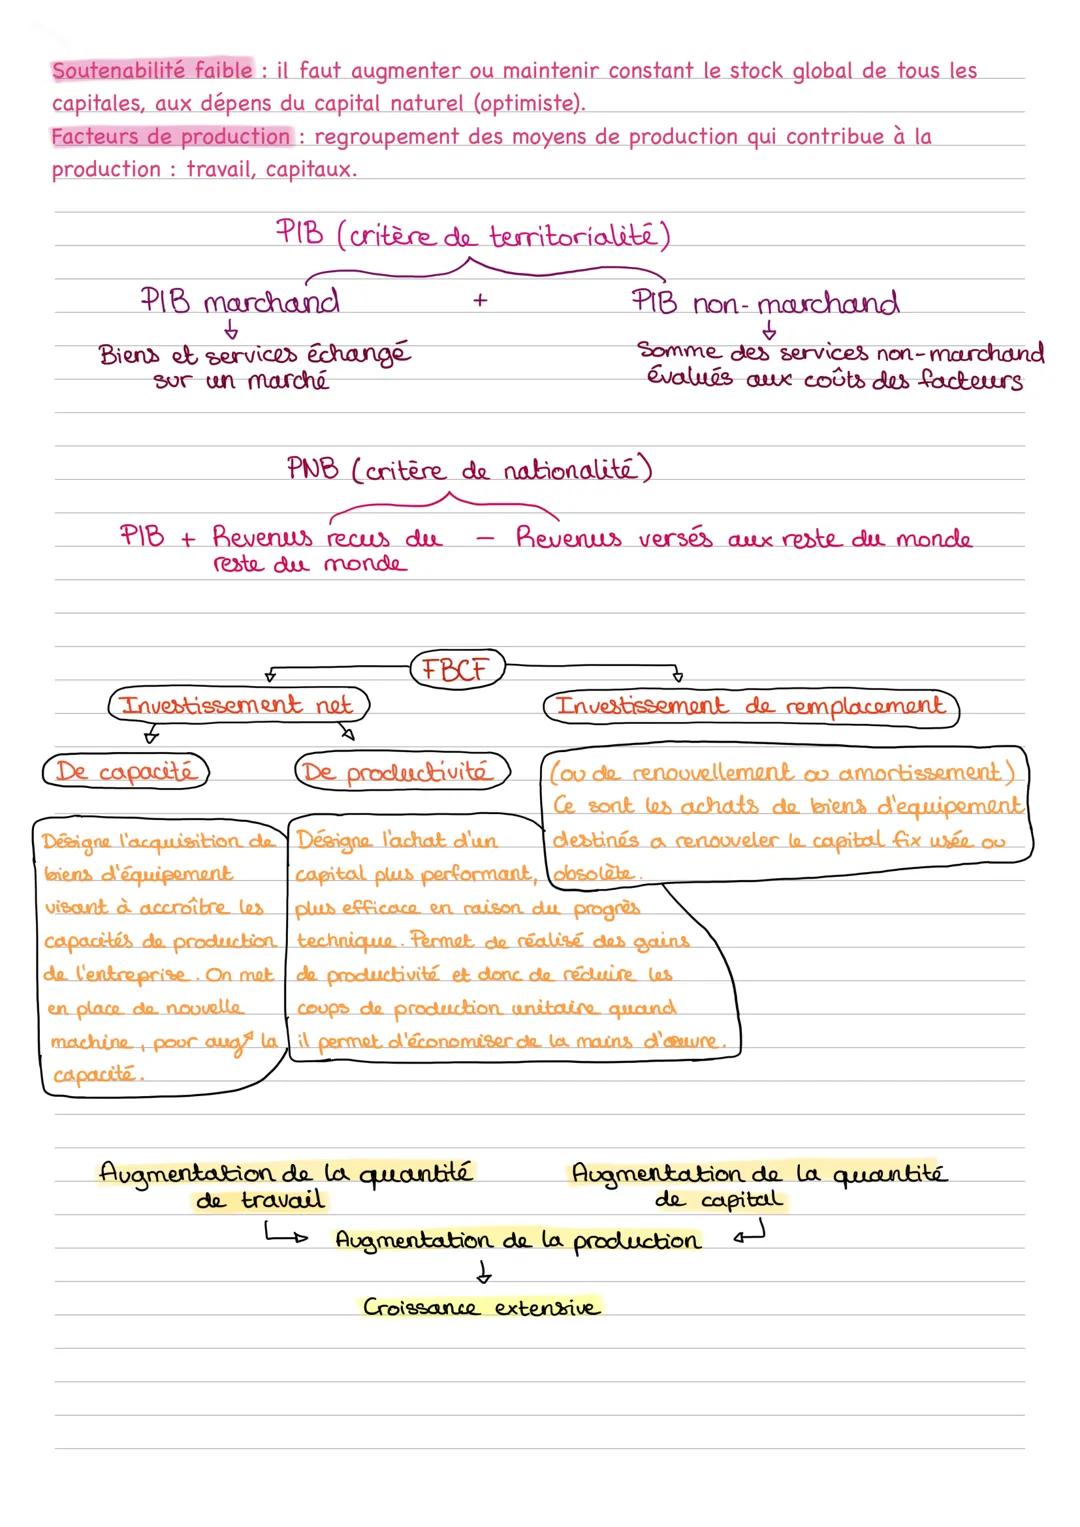 Soutenabilité faible : il faut augmenter ou maintenir constant le stock global de tous les
capitales, aux dépens du capital naturel (optimiste).
Facteurs de production : regroupement des moyens de production qui contribue à la
production : travail, capitaux.
PIB (critère de territorialité)
PIB marchand + PIB non-marchand
Biens et services échangé
sur un marché
Somme des services non-marchand
évalués aux coûts des facteurs
PNB (critère de nationalité)
PIB + Revenus recus du - Revenus versés aux reste du monde
reste du monde
FBCF
Investissement net
Investissement de remplacement
De capacité
De productivité
(ou de renouvellement ou amortissement)
Ce sont les achats de biens d'equipement
destinés a renouveler le capital fix usée ou
obsolète.
Désigne l'acquisition de
biens d'équipement
visant à accroître les
capacités de production
de l'entreprise. On met
en place de nouvelle
machine, pour aug↗ la
capacité.
Désigne l'achat d'un
capital plus performant,
plus efficace en raison du progrès
technique. Permet de réalisé des gains
de productivité et donc de réduire les
coups de production unitaire quand
il permet d'économiser de la mains d'œuvre.
Augmentation de la quantité
de travail
Augmentation de la quantité
de capital
Augmentation de la production
Croissance extensive